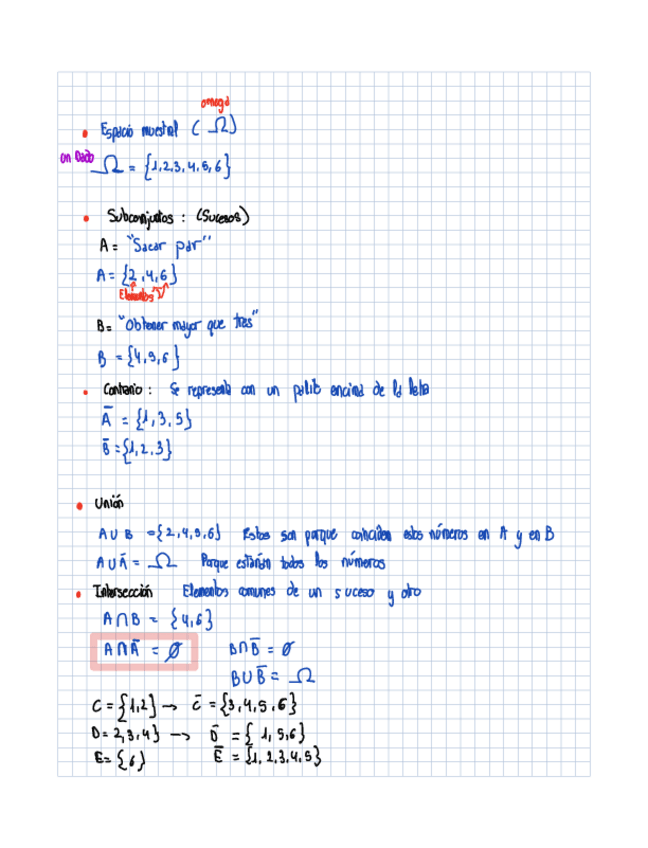 omega
• Espacio muestral ( Ω )
Un Dado
Ω = {1,2,3,4,5,6}
• Subconjuntos : (Sucesos)
A = "Sacar par"
A = {2,4,6}
Elementos
B = "Obtener mayor que tres"
B = {4,5,6}
• Contrario : Se representa con un palito encima de la letra
A̅ = {1,3,5}
B̅ = {1,2,3}
• Unión
A ∪ B = {2,4,5,6} Estos son porque coinciden estos números en A y en B
A ∪ A̅ = Ω Porque estarían todos los números
• Intersección Elementos comunes de un suceso y otro
A ∩ B = {4,6}
A ∩ A̅ = Ø B ∩ B̅ = Ø
B ∪ B̅ = Ω
C = {1,2} → C̅ = {3,4,5,6}
D = 2,3,4} → D̅ = { 1,5,6}
E = {6} E̅ = {1,2,3,4,5}